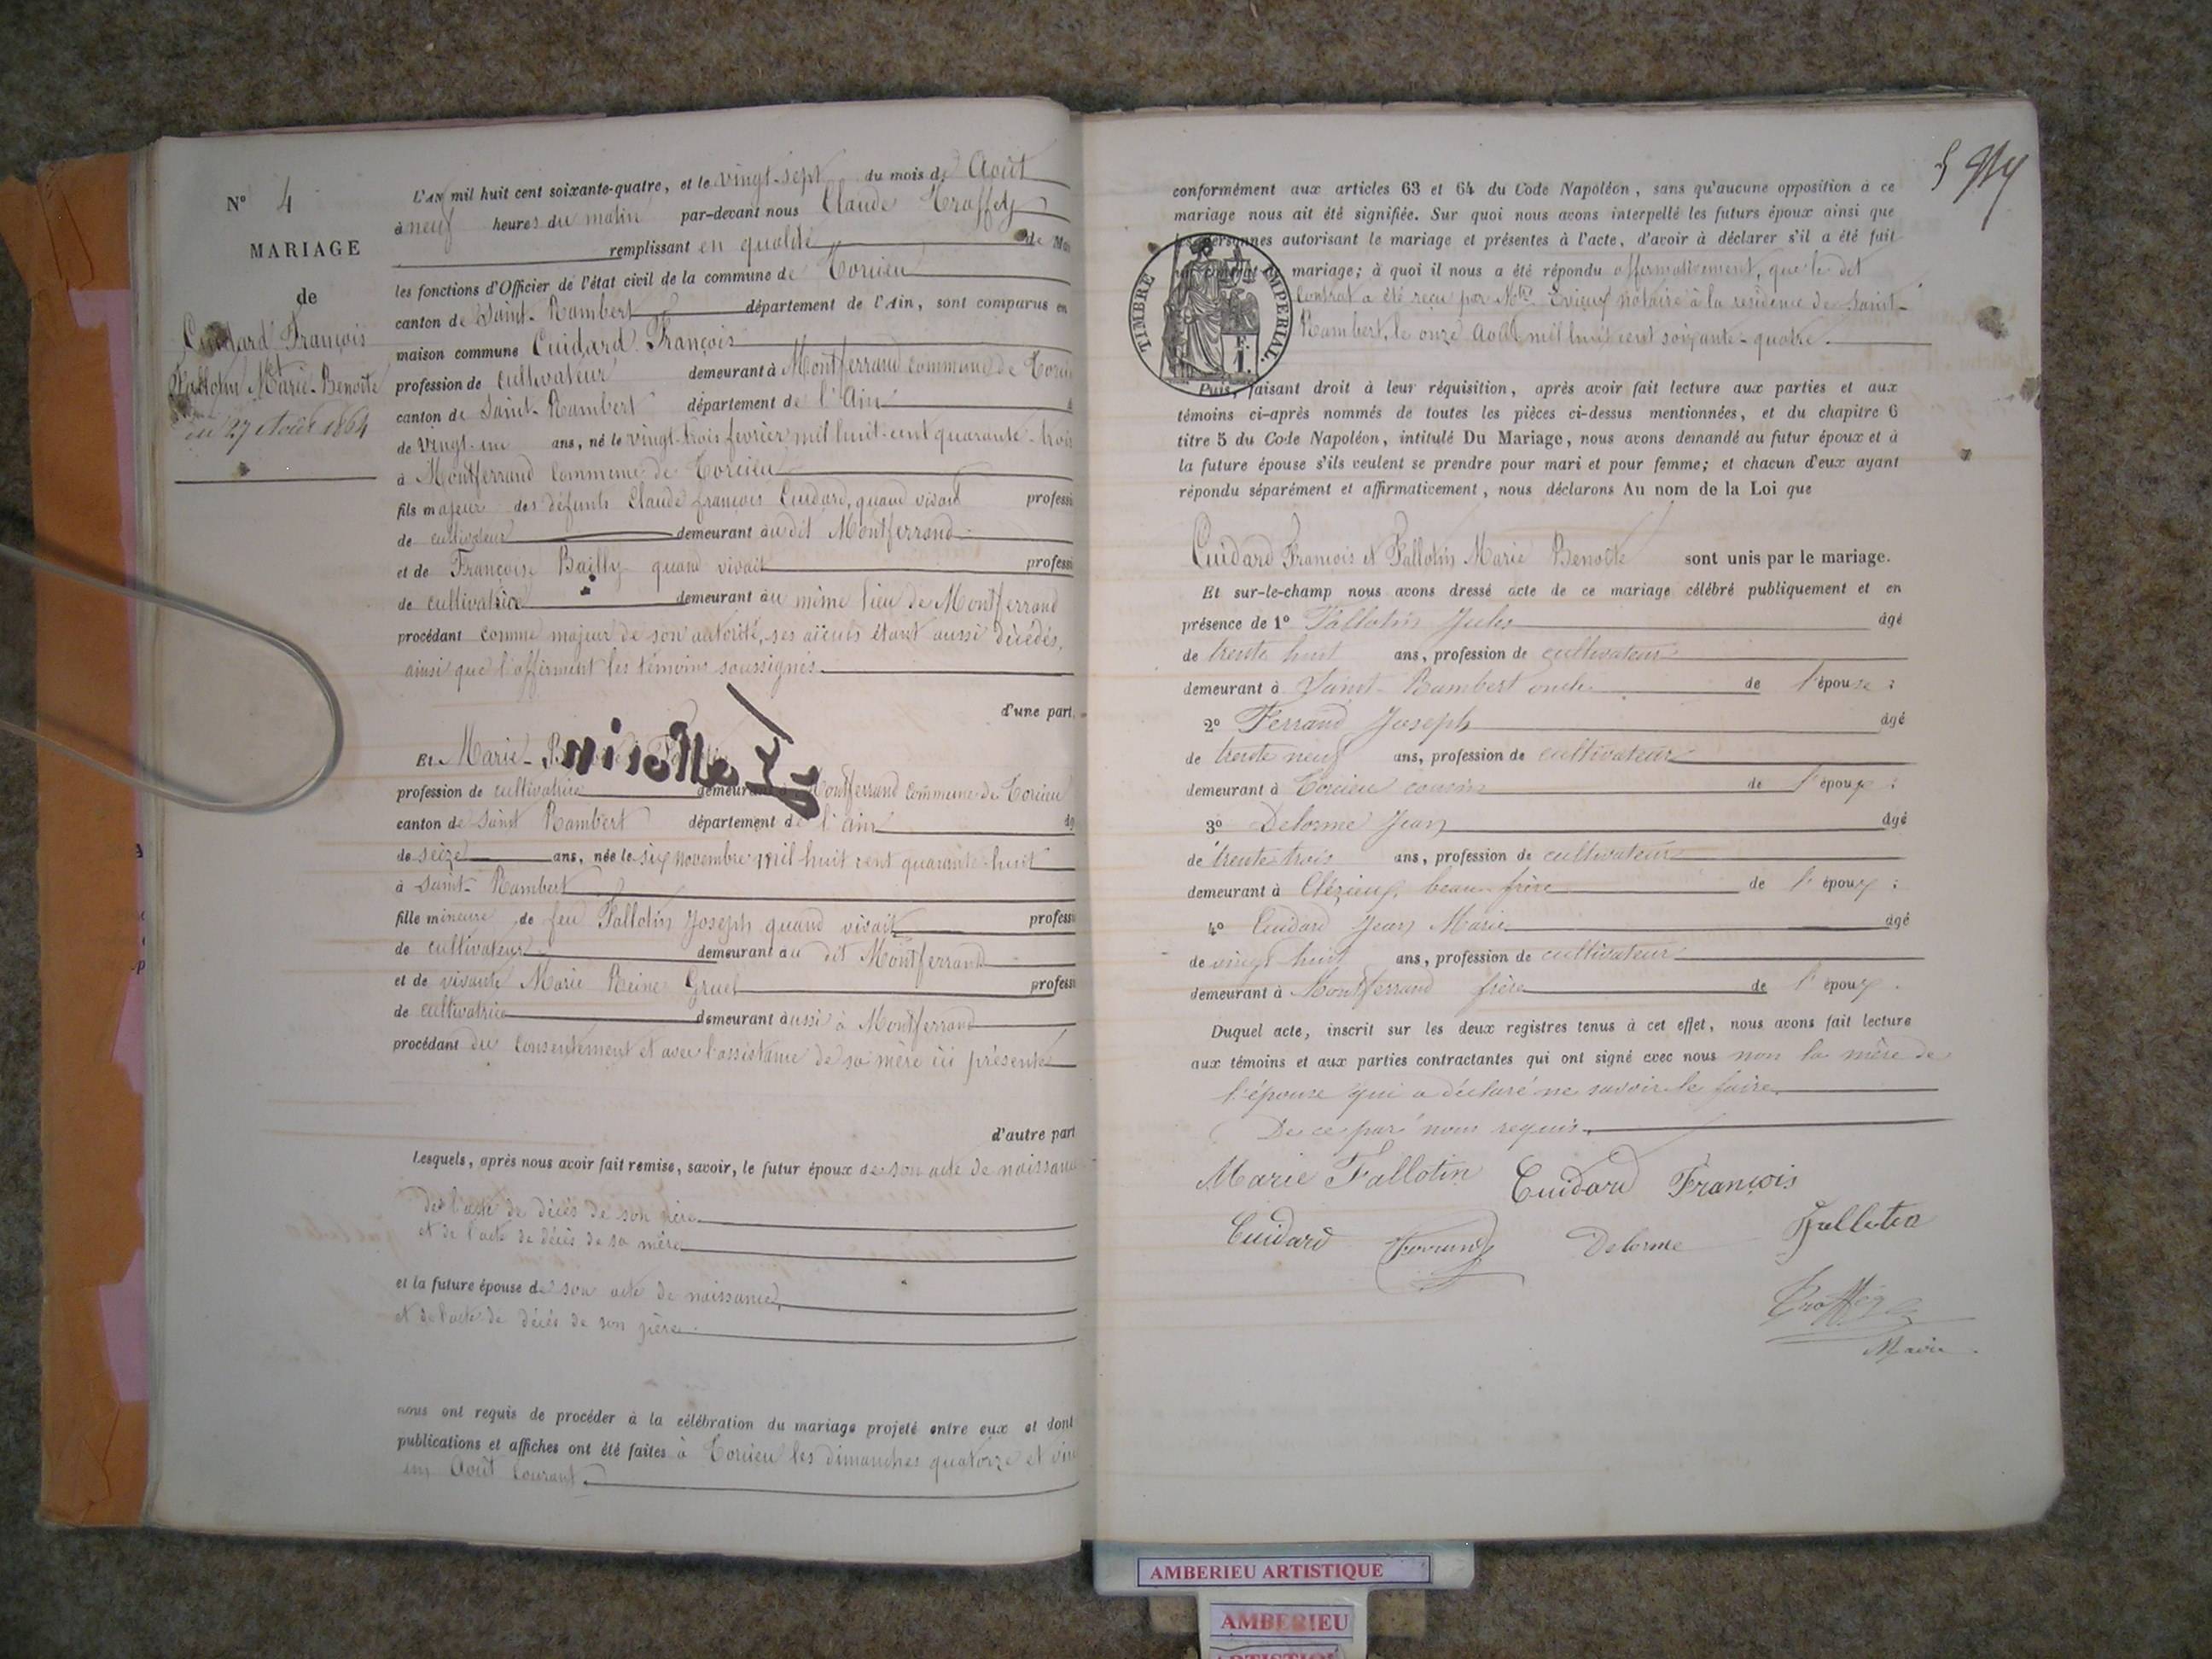 N° 4
MARIAGE
de
Cuidard François
et
Fallotin Marie-Benoite
du 27 Août 1864
L'AN mil huit cent soixante-quatre, et le vingt-sept du mois de Août
à neuf heures du matin par-devant nous Claude Troffey
remplissant en qualité de Mai
les fonctions d'Officier de l'état civil de la commune de Torcieu
canton de Saint-Rambert département de l'Ain, sont comparus en
maison commune Cuidard François
profession de cultivateur demeurant à Montferrand commune de Torcieu
canton de Saint-Rambert département de l'Ain
de vingt-un ans, né le vingt-trois février mil huit-cent quarante-trois
à Montferrand Commune de Torcieu
fils majeur des défunts Claude françois Cuidard, quand vivait professi
de cultivateur demeurant au dit Montferrand
et de Françoise Bailly quand vivait professi
de cultivatrice demeurant au même lieu de Montferrand
procédant comme majeur de son autorité, ses aïeuls étant aussi décédés,
ainsi que l'affirment les témoins soussignés
d'une part,
Et Marie-
profession de cultivatrice demeurant à Montferrand commune de Torcieu
canton de Saint Rambert département de l'Ain âg
de seize ans, née le six novembre mil huit cent quarante-huit
à Saint-Rambert
fille mineure de feu Fallotin Joseph quand vivait professi
de cultivateur demeurant au dit Montferrand
et de vivante Marie Reine Gruel professi
de cultivatrice demeurant aussi à Montferrand
procédant du Consentement et avec l'assistance de sa mère ici présente
d'autre part
Lesquels, après nous avoir fait remise, savoir, le futur époux de son acte de naissance
de l'acte de décès de son père
et de l'acte de décès de sa mère
et la future épouse de son acte de naissance,
et de l'acte de décès de son père
nous ont requis de procéder à la célébration du mariage projeté entre eux et dont
publications et affiches ont été faites à Torcieu les dimanches quatorze et vin
un Août Courant
5
conformément aux articles 63 et 64 du Code Napoléon, sans qu'aucune opposition à ce
mariage nous ait été signifiée. Sur quoi nous avons interpellé les futurs époux ainsi que
les personnes autorisant le mariage et présentes à l'acte, d'avoir à déclarer s'il a été fait
un contrat de mariage; à quoi il nous a été répondu affirmativement, que le dit
Contrat a été reçu par Mtre notaire à la résidence de Saint-
Rambert, le onze Août mil huit cent soixante-quatre.
TIMBRE IMPERIAL.
1 F.
Puis, faisant droit à leur réquisition, après avoir fait lecture aux parties et aux
témoins ci-après nommés de toutes les pièces ci-dessus mentionnées, et du chapitre 6
titre 5 du Code Napoléon, intitulé Du Mariage, nous avons demandé au futur époux et à
la future épouse s'ils veulent se prendre pour mari et pour femme; et chacun d'eux ayant
répondu séparément et affirmativement, nous déclarons Au nom de la Loi que
Cuidard François et Fallotin Marie Benoîte sont unis par le mariage.
Et sur-le-champ nous avons dressé acte de ce mariage célébré publiquement et en
présence de 1° Fallotin Jules âgé
de trente huit ans, profession de cultivateur
demeurant à Saint-Rambert oncle de l'épouse ;
2° Ferrand Joseph âgé
de trente neuf ans, profession de cultivateur
demeurant à Torcieu cousin de l'époux ;
3° Delorme Jean âgé
de trente-trois ans, profession de cultivateur
demeurant à Clézieux beau-frère de l'époux ;
4° Cuidard Jean Marie âgé
de vingt huit ans, profession de cultivateur
demeurant à Montferrand frère de l'époux.
Duquel acte, inscrit sur les deux registres tenus à cet effet, nous avons fait lecture
aux témoins et aux parties contractantes qui ont signé avec nous non la mère de
l'épouse qui a déclaré ne savoir le faire.
De ce par nous requis.
Marie Fallotin Cuidard François
Cuidard Ferrand Delorme Fallotin
Troffey
Maire.
AMBERIEU ARTISTIQUE
AMBERIEU
ARTISTIQUE